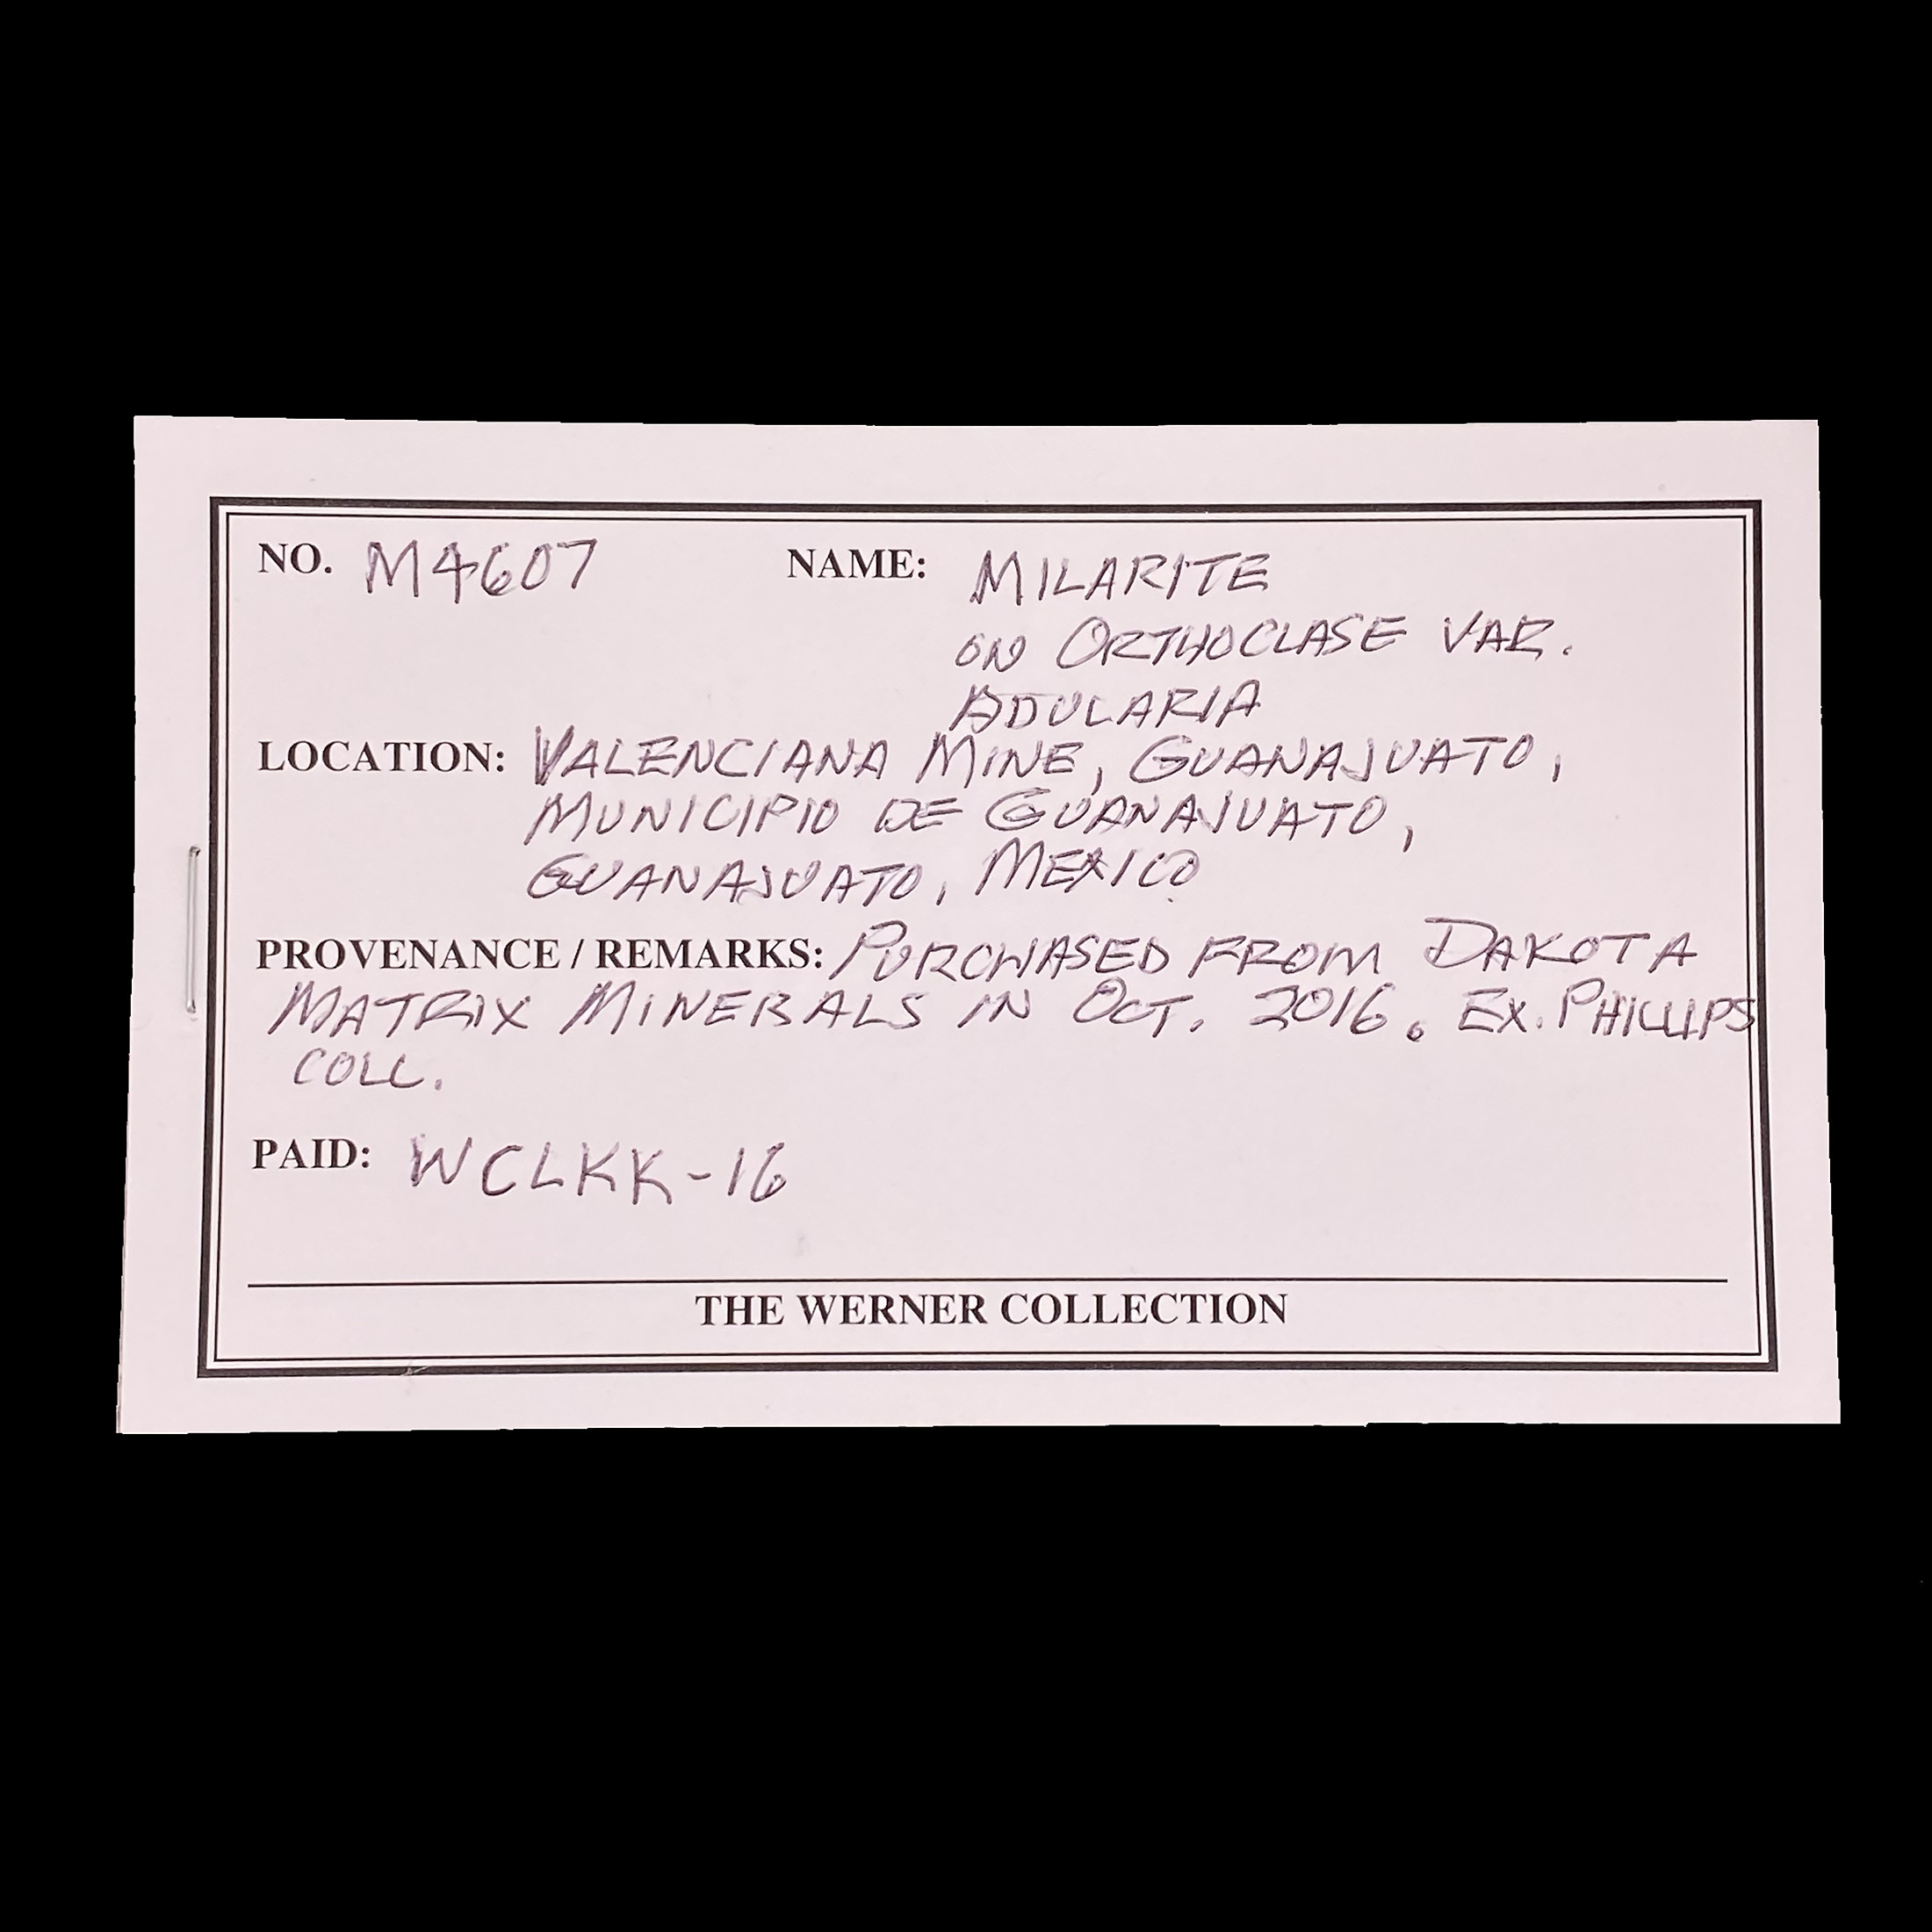 NO. M4607 NAME: MILARITE
ON ORTHOCLASE VAR.
ADULARIA
LOCATION: VALENCIANA MINE, GUANAJUATO,
MUNICIPIO DE GUANAJUATO,
GUANAJUATO, MEXICO
PROVENANCE / REMARKS: PURCHASED FROM DAKOTA
MATRIX MINERALS IN OCT. 2016. EX. PHILLIPS
COLL.
PAID: WCLKK-16
THE WERNER COLLECTION